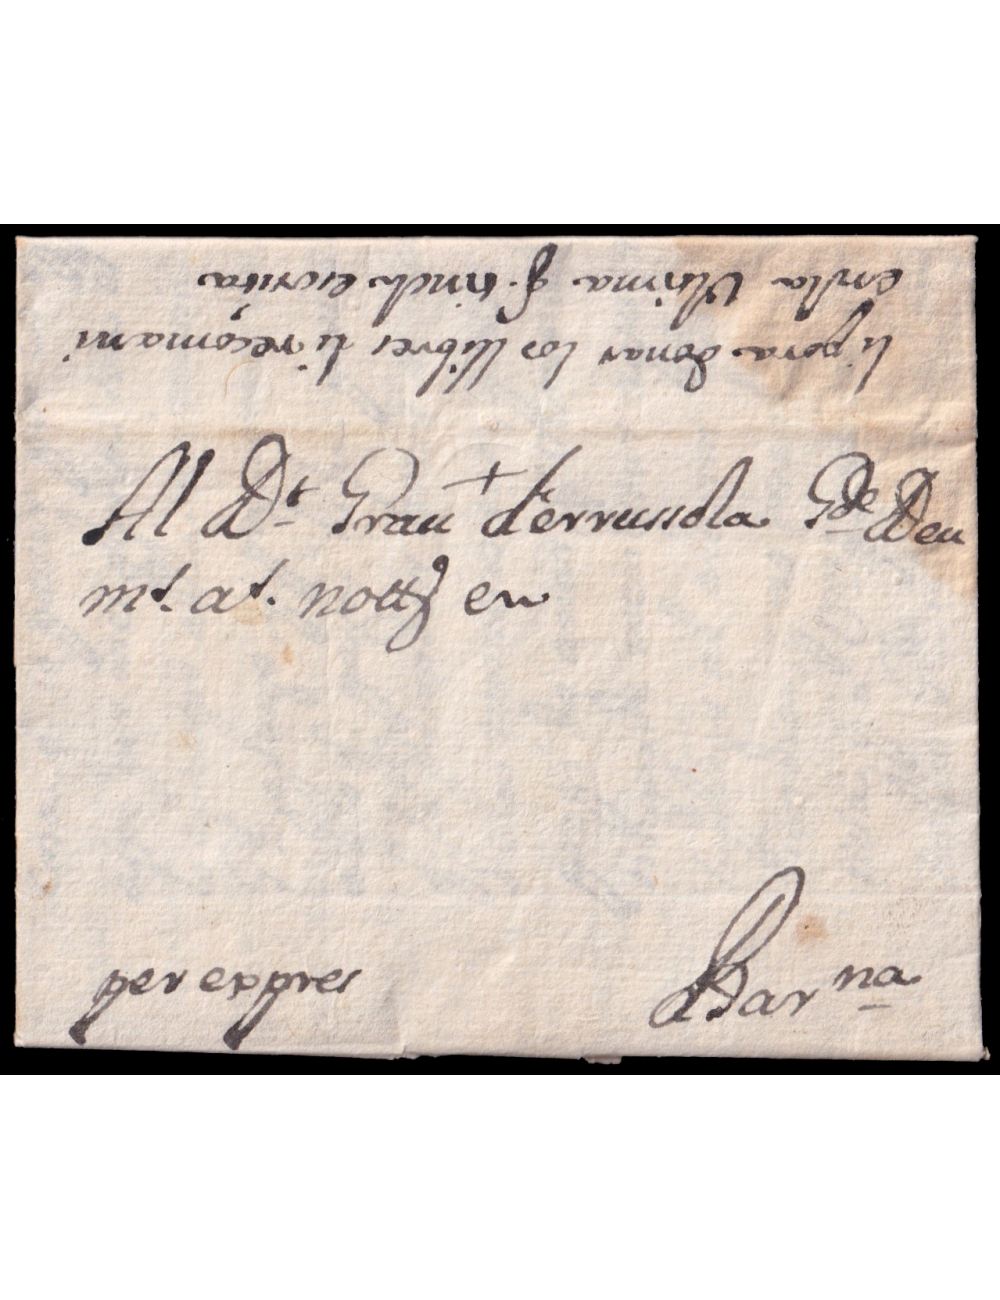 li pora donar los llibres li recomani
en la Ultima q. tinch escrita
+
Al Dr. Grau d'errussola Gde Deu
mt. at. nottj en
per expres
Barna